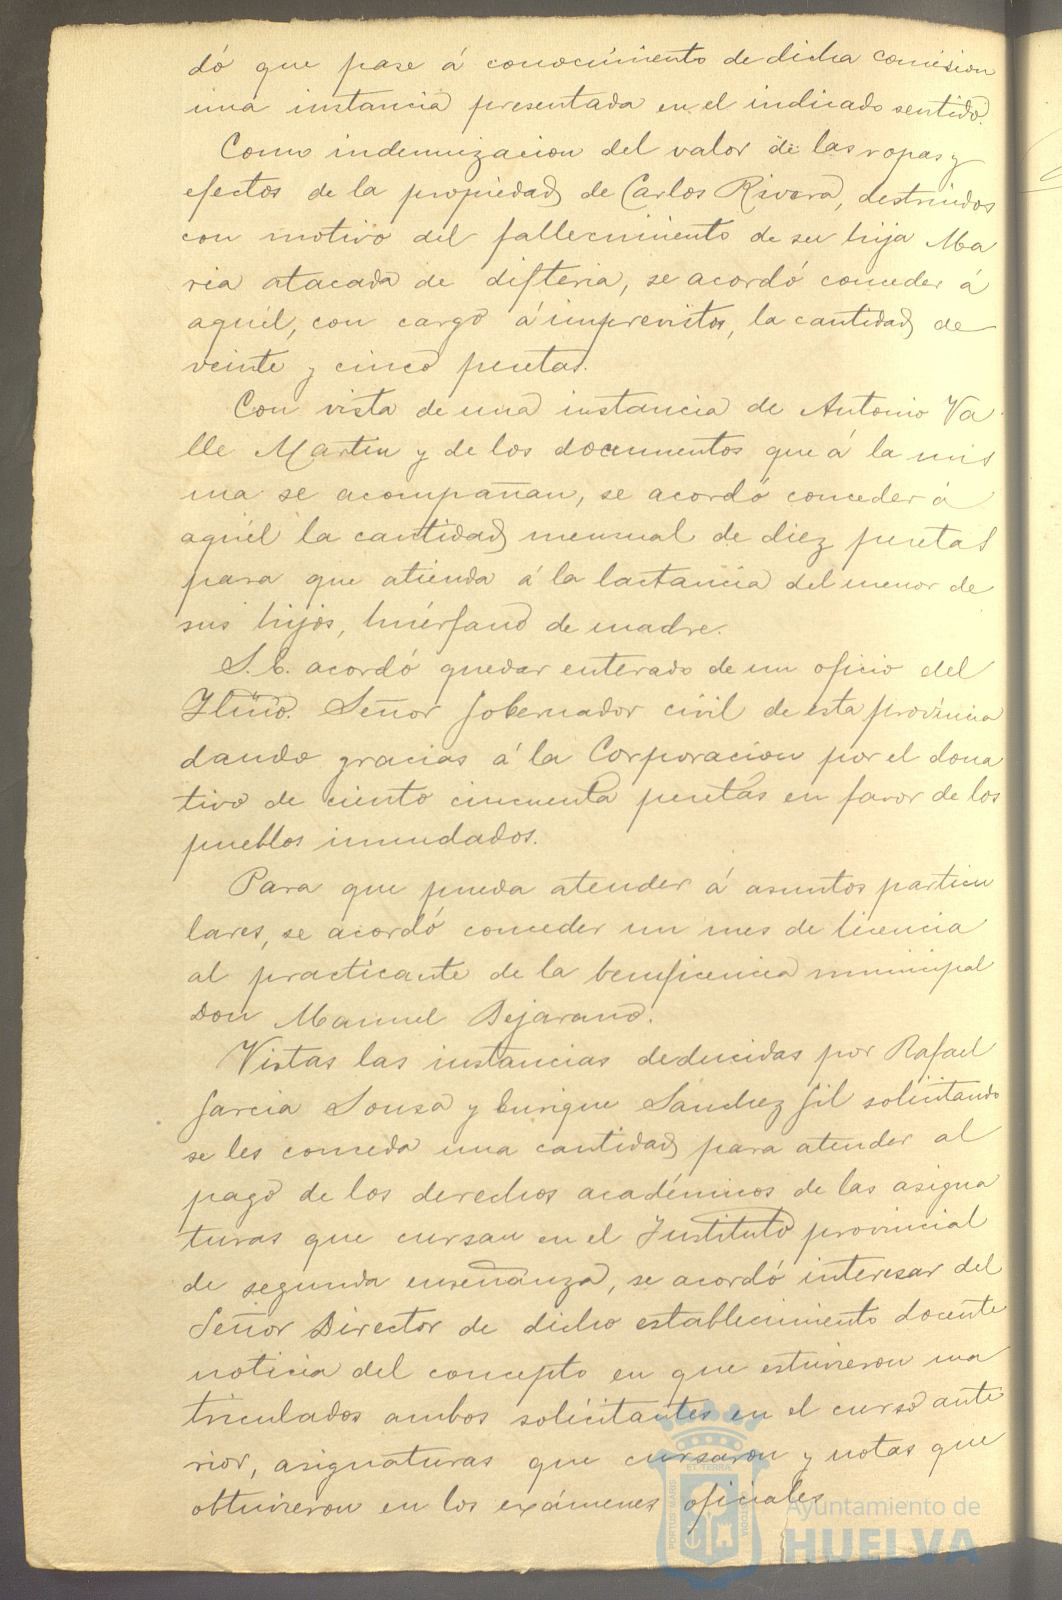 dó que pase á conocimiento de dicha comision
una instancia presentada en el indicado sentido.
Como indemnizacion del valor de las ropas y
efectos de la propiedad de Carlos Rivera, destruidos
con motivo del fallecimiento de su hija Ma
ria atacada de difteria, se acordó conceder á
aquél, con cargo á imprevistos, la cantidad de
veinte y cinco pesetas.
Con vista de una instancia de Antonio Va
lle Martin y de los documentos que á la mis
ma se acompañan, se acordó conceder á
aquél la cantidad mensual de diez pesetas
para que atienda á la lactancia del menor de
sus hijos, huérfano de madre.
S. E. acordó quedar enterado de un oficio del
Iltmo. Señor Gobernador civil de esta provincia
dando gracias á la Corporacion por el dona
tivo de ciento cincuenta pesetas en favor de los
pueblos inundados.
Para que pueda atender á asuntos particu
lares, se acordó conceder un mes de licencia
al practicante de la beneficencia municipal
Don Manuel Bejarano.
Vistas las instancias deducidas por Rafael
Garcia Sousa y Enrique Sánchez Gil solicitando
se les conceda una cantidad para atender al
pago de los derechos académicos de las asigna
turas que cursan en el Instituto provincial
de segunda enseñanza, se acordó interesar del
Señor Director de dicho establecimiento docente
noticia del concepto en que estuvieron ma
triculados ambos solicitantes en el curso ante
rior, asignaturas que cursaron y notas que
obtuvieron en los exámenes oficiales
PORTUS MARIS ET TERRAE CUSTODIA
Ayuntamiento de
HUELVA